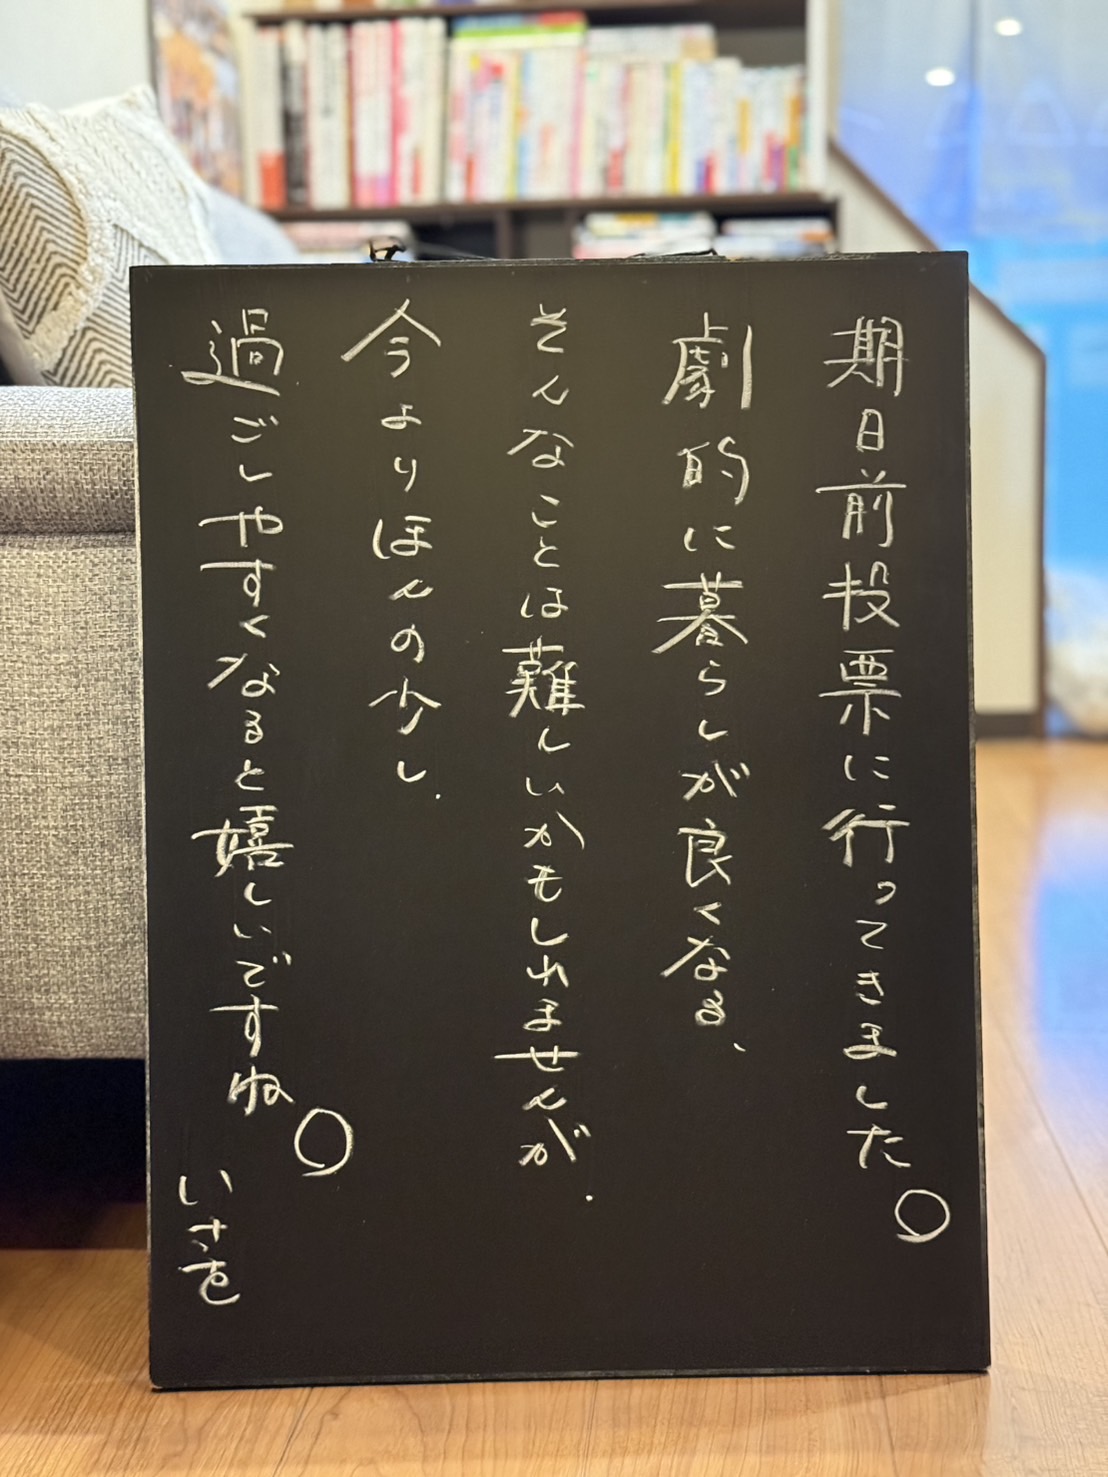 期日前投票に行ってきました。
劇的に暮らしが良くなる、
そんなことは難しいかもしれませんが、
今よりほんの少し、
過ごしやすくなると嬉しいですね。
いさを